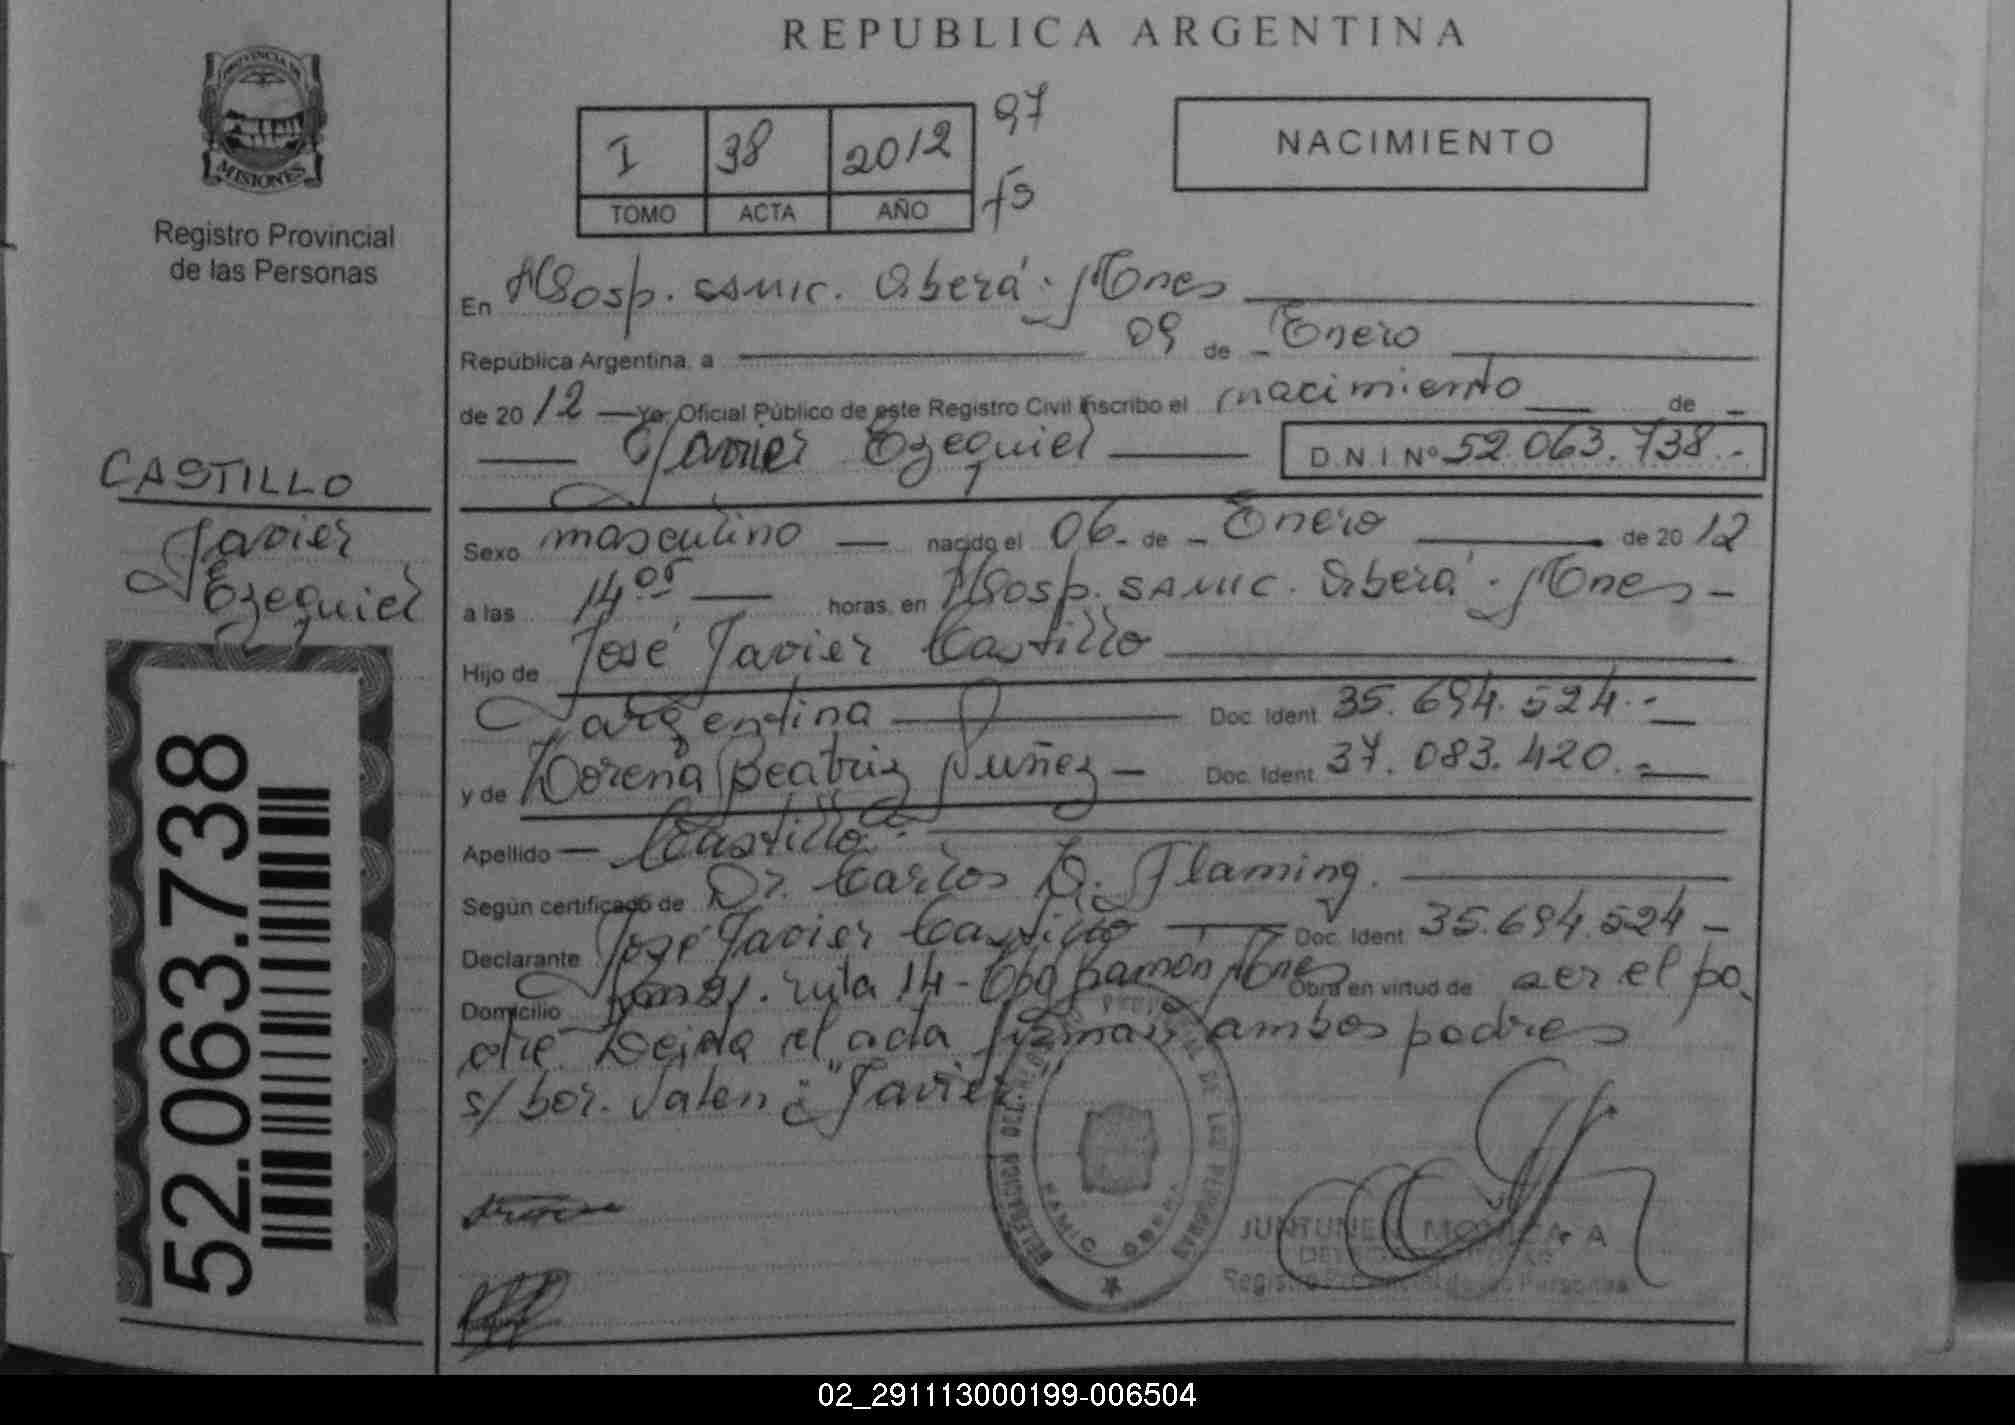 REPUBLICA ARGENTINA
PROVINCIA DE
MISIONES
Registro Provincial
de las Personas
I 38 2012 97
TOMO ACTA AÑO fs
NACIMIENTO
En Hosp. SAMIC. Oberá. Mones
República Argentina, a 09 de Enero
de 2012 Yo, Oficial Público de este Registro Civil Inscribo el nacimiento de
Javier Ezequiel D.N.I Nº 52.063.738.-
CASTILLO
Javier
Ezequiel
52.063.738
Sexo masculino nacido el 06 - de - Enero de 2012
a las 14 05 horas, en Hosp. SAMIC. Oberá. Mones -
Hijo de José Javier Castillo
argentina Doc. Ident 35.694.524.-
y de Lorena Beatriz Nuñez - Doc. Ident 37.083.420.-
Apellido Castillo.
Según certificado de Dr. Carlos D. Flaming.
Declarante José Javier Castillo Doc. Ident 35.694.524 -
Domicilio ruta 14 - Ramón Mones Obra en virtud de ser el pa
dre Leida el acta firman ambos padres
s/bor. Valen: "Javier"
DE LAS PERSONAS
JUNTUNEN MONICA A
Registro Provincial de las Personas
02_291113000199-006504